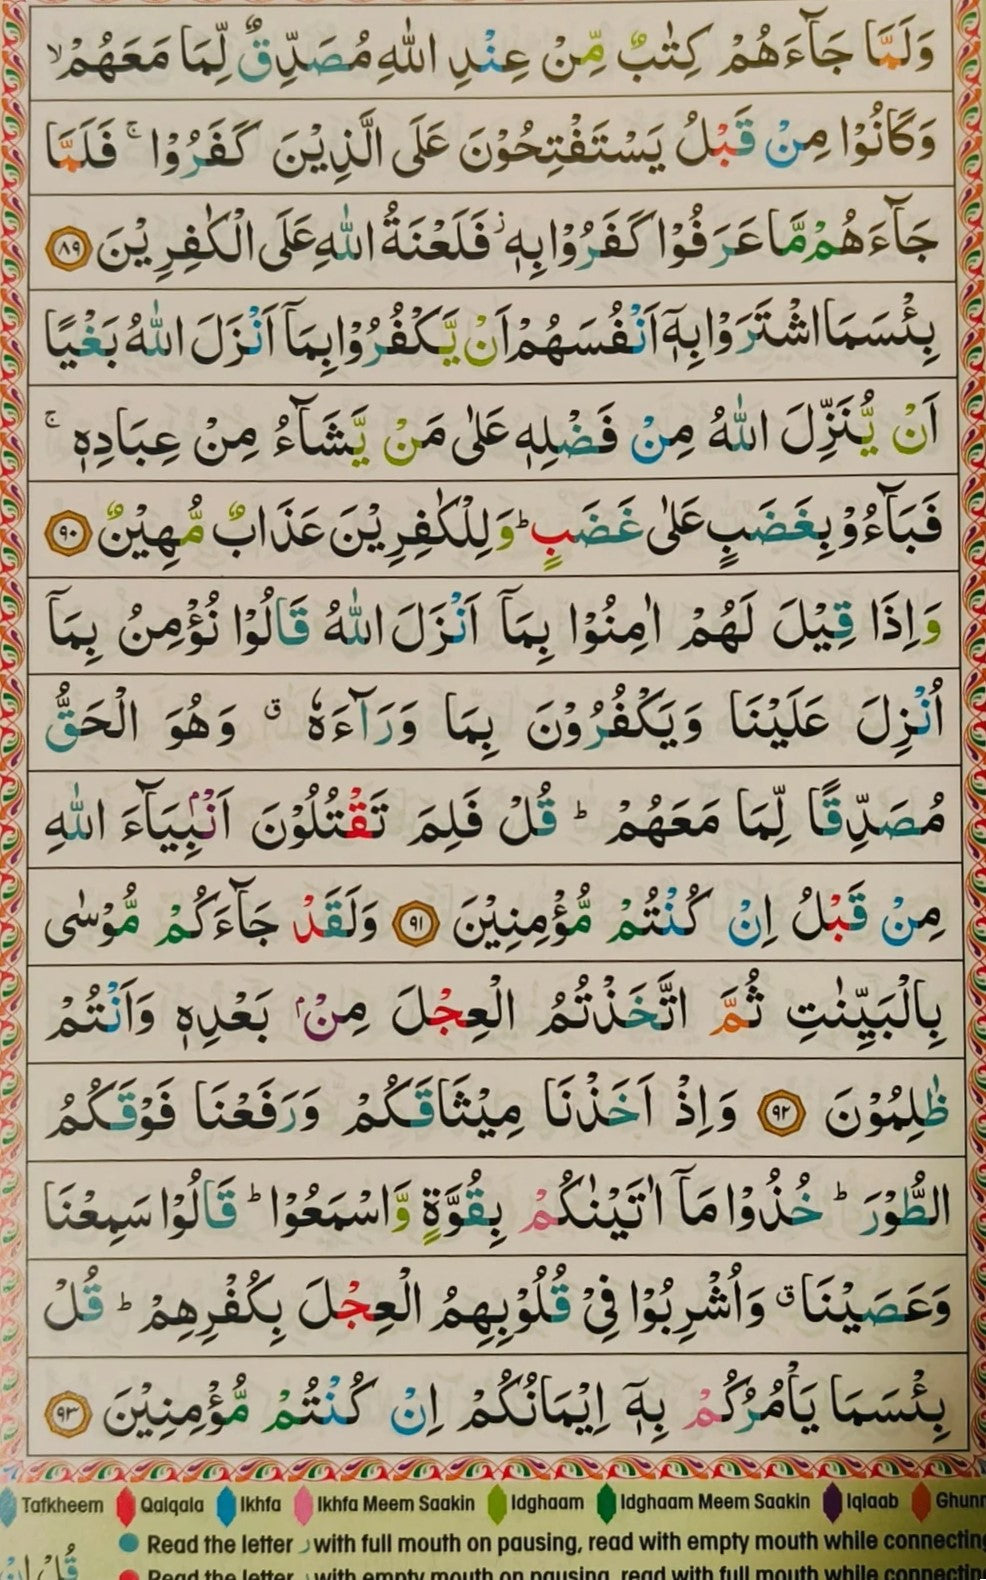 وَلَمَّا جَآءَهُمْ كِتٰبٌ مِّنْ عِنْدِ اللّٰهِ مُصَدِّقٌ لِّمَا مَعَهُمْ ۙ
وَكَانُوْا مِنْ قَبْلُ يَسْتَفْتِحُوْنَ عَلَى الَّذِيْنَ كَفَرُوْا ۚ فَلَمَّا
جَآءَهُمْ مَّا عَرَفُوْا كَفَرُوْا بِهٖ ۫ فَلَعْنَةُ اللّٰهِ عَلَى الْكٰفِرِيْنَ ٨٩
بِئْسَمَا اشْتَرَوْا بِهٖٓ اَنْفُسَهُمْ اَنْ يَّكْفُرُوْا بِمَآ اَنْزَلَ اللّٰهُ بَغْيًا
اَنْ يُّنَزِّلَ اللّٰهُ مِنْ فَضْلِهٖ عَلٰى مَنْ يَّشَآءُ مِنْ عِبَادِهٖ ۚ
فَبَآءُوْ بِغَضَبٍ عَلٰى غَضَبٍ ؕ وَلِلْكٰفِرِيْنَ عَذَابٌ مُّهِيْنٌ ٩٠
وَاِذَا قِيْلَ لَهُمْ اٰمِنُوْا بِمَآ اَنْزَلَ اللّٰهُ قَالُوْا نُؤْمِنُ بِمَآ
اُنْزِلَ عَلَيْنَا وَيَكْفُرُوْنَ بِمَا وَرَآءَهٗ ۗ وَهُوَ الْحَقُّ
مُصَدِّقًا لِّمَا مَعَهُمْ ؕ قُلْ فَلِمَ تَقْتُلُوْنَ اَنْۢبِيَآءَ اللّٰهِ
مِنْ قَبْلُ اِنْ كُنْتُمْ مُّؤْمِنِيْنَ ٩١ وَلَقَدْ جَآءَكُمْ مُّوْسٰى
بِالْبَيِّنٰتِ ثُمَّ اتَّخَذْتُمُ الْعِجْلَ مِنْۢ بَعْدِهٖ وَاَنْتُمْ
ظٰلِمُوْنَ ٩٢ وَاِذْ اَخَذْنَا مِيْثَاقَكُمْ وَرَفَعْنَا فَوْقَكُمُ
الطُّوْرَ ؕ خُذُوْا مَآ اٰتَيْنٰكُمْ بِقُوَّةٍ وَّاسْمَعُوْا ؕ قَالُوْا سَمِعْنَا
وَعَصَيْنَا ۗ وَاُشْرِبُوْا فِيْ قُلُوْبِهِمُ الْعِجْلَ بِكُفْرِهِمْ ؕ قُلْ
بِئْسَمَا يَاْمُرُكُمْ بِهٖٓ اِيْمَانُكُمْ اِنْ كُنْتُمْ مُّؤْمِنِيْنَ ٩٣
Tafkheem Qalqala Ikhfa Ikhfa Meem Saakin Idghaam Idghaam Meem Saakin Iqlaab
Read the letter ر with full mouth on pausing, read with empty mouth while connecting
Read the letter ر with empty mouth on pausing, read with full mouth while connecting